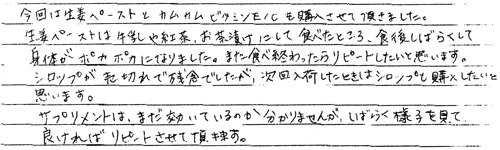 今回は生姜ペーストとカムカムビタミンE/Cを購入させて頂きました。
生姜ペーストは牛乳や紅茶、お茶漬けにして食べたところ、食後しばらくして
身体がポカポカになりました。また食べ終わったらリピートしたいと思います。
シロップが売切れで残念でしたが、次回入荷したときはシロップも購入したいと
思います。
サプリメントは、まだ効いているのか分かりませんが、しばらく様子を見て、
良ければリピートさせて頂きます。